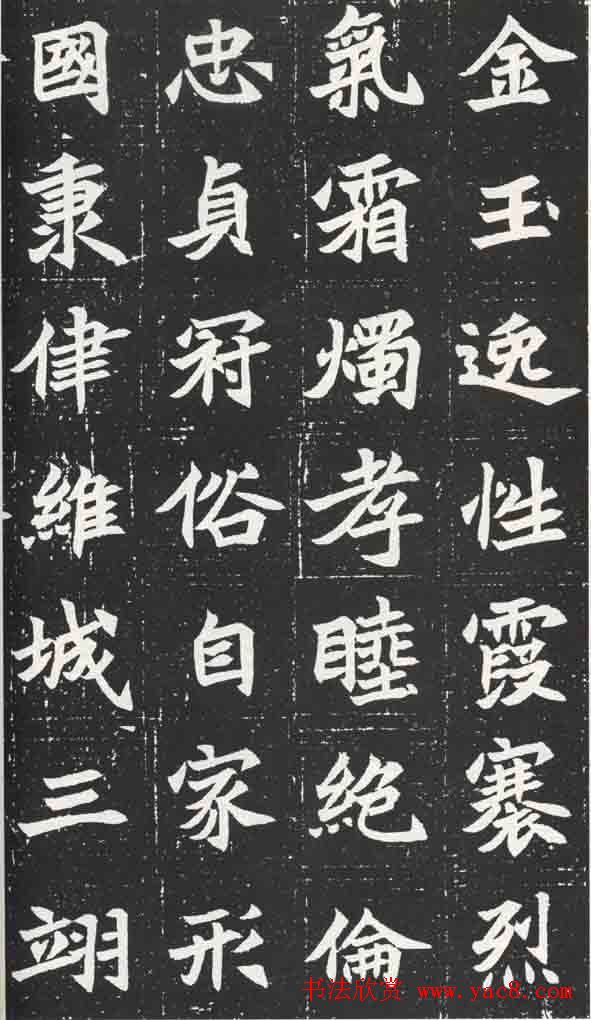 金玉逸性霞褰烈
氣霜燭孝睦絶倫
忠貞冠俗自家形
國秉律維城三翊
书法欣赏 www.yac8.com